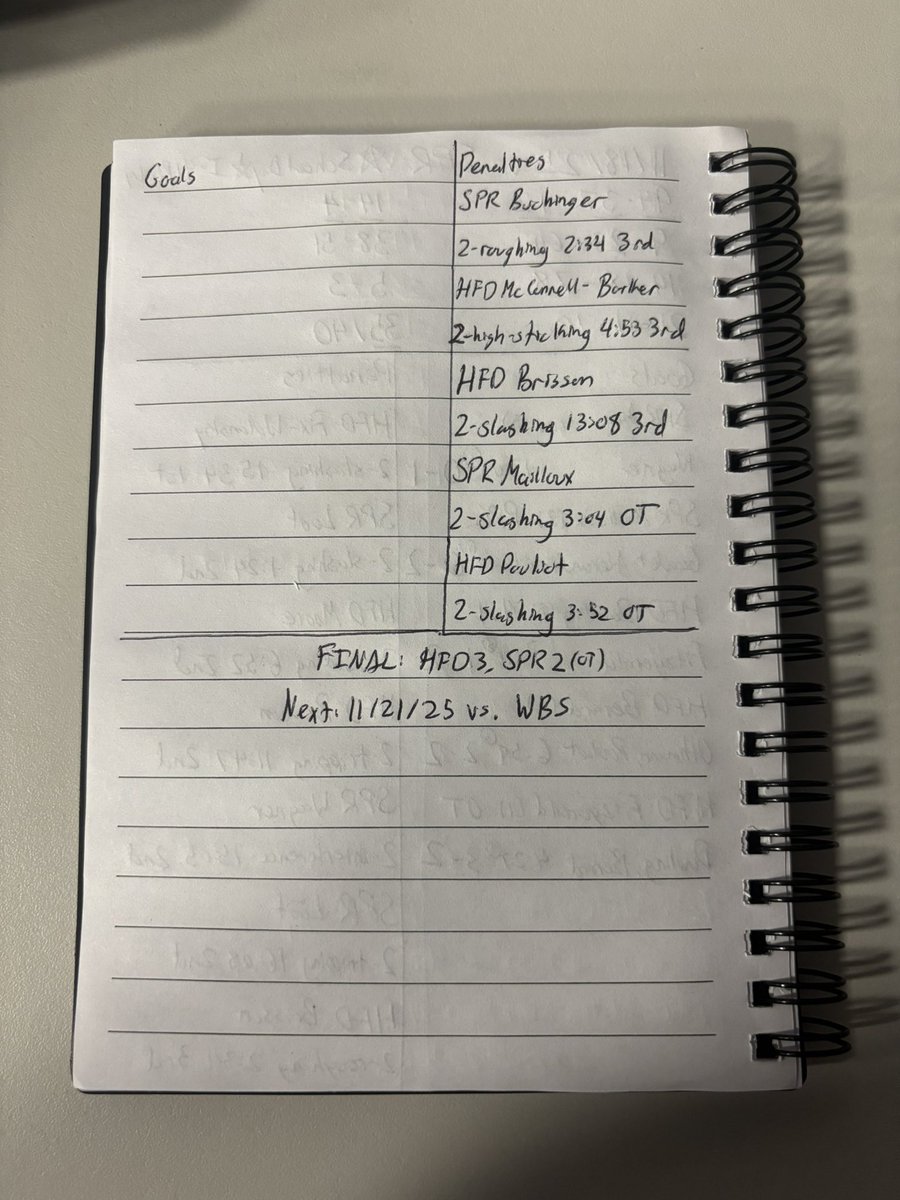 Goals
Penalties
SPR Buchinger
2-roughing 2:34 3rd
HFD McConnell-Barker
2-high-sticking 4:53 3rd
HFD Brisson
2-slashing 13:08 3rd
SPR Mailloux
2-slashing 3:04 OT
HFD Pouliot
2-slashing 3:52 OT
FINAL: HFD 3, SPR 2 (OT)
Next: 11/21/25 vs. WBS